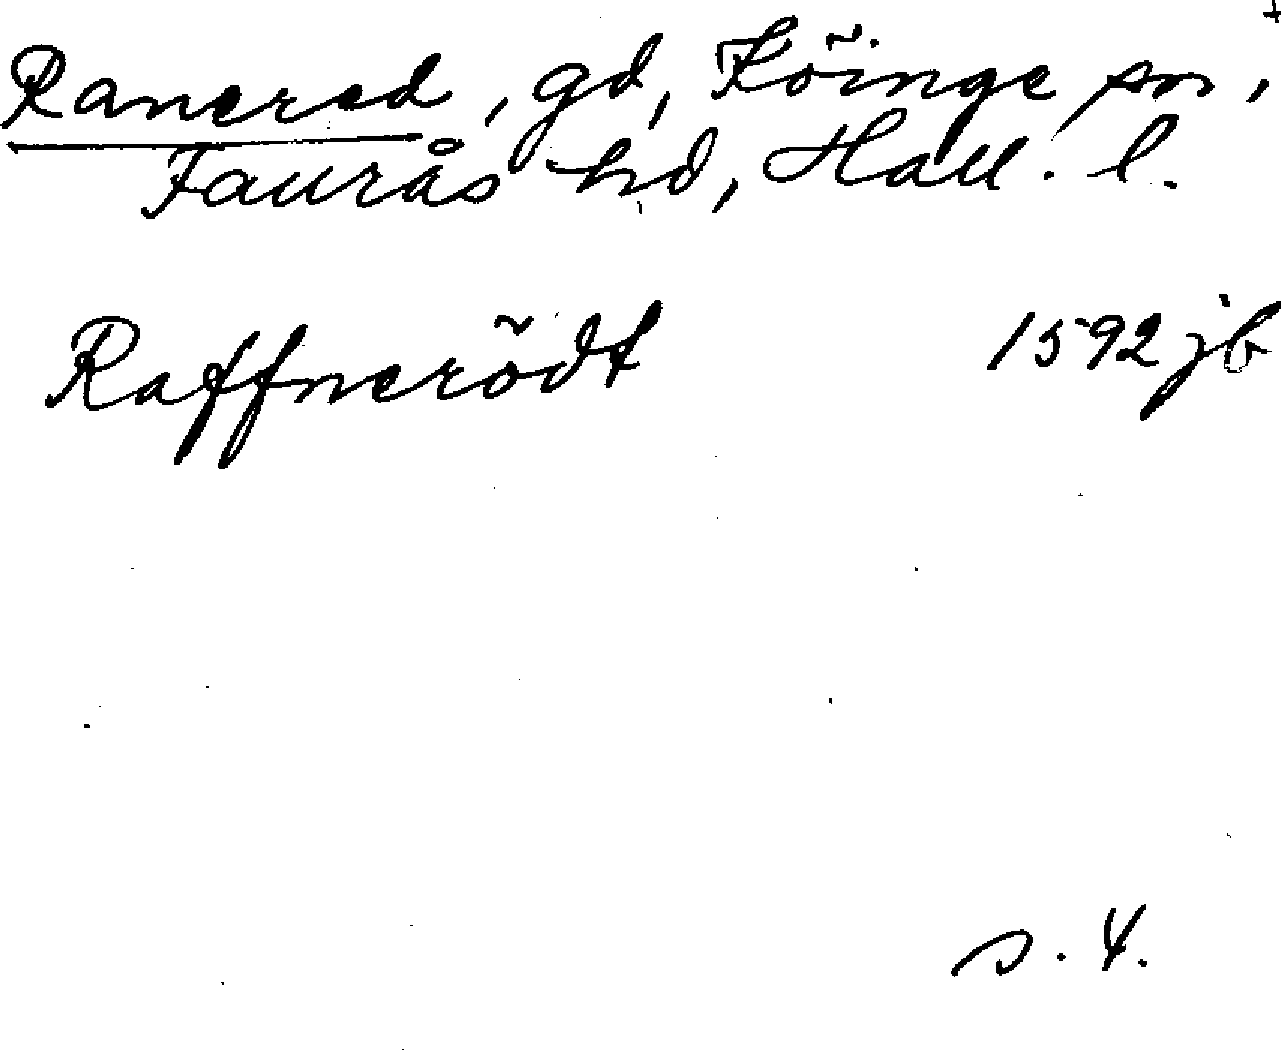 Ranered, gd, Köinge sn,
Faurås hd, Hall. l.
Raffnerödt 1592 jb
s. 4.